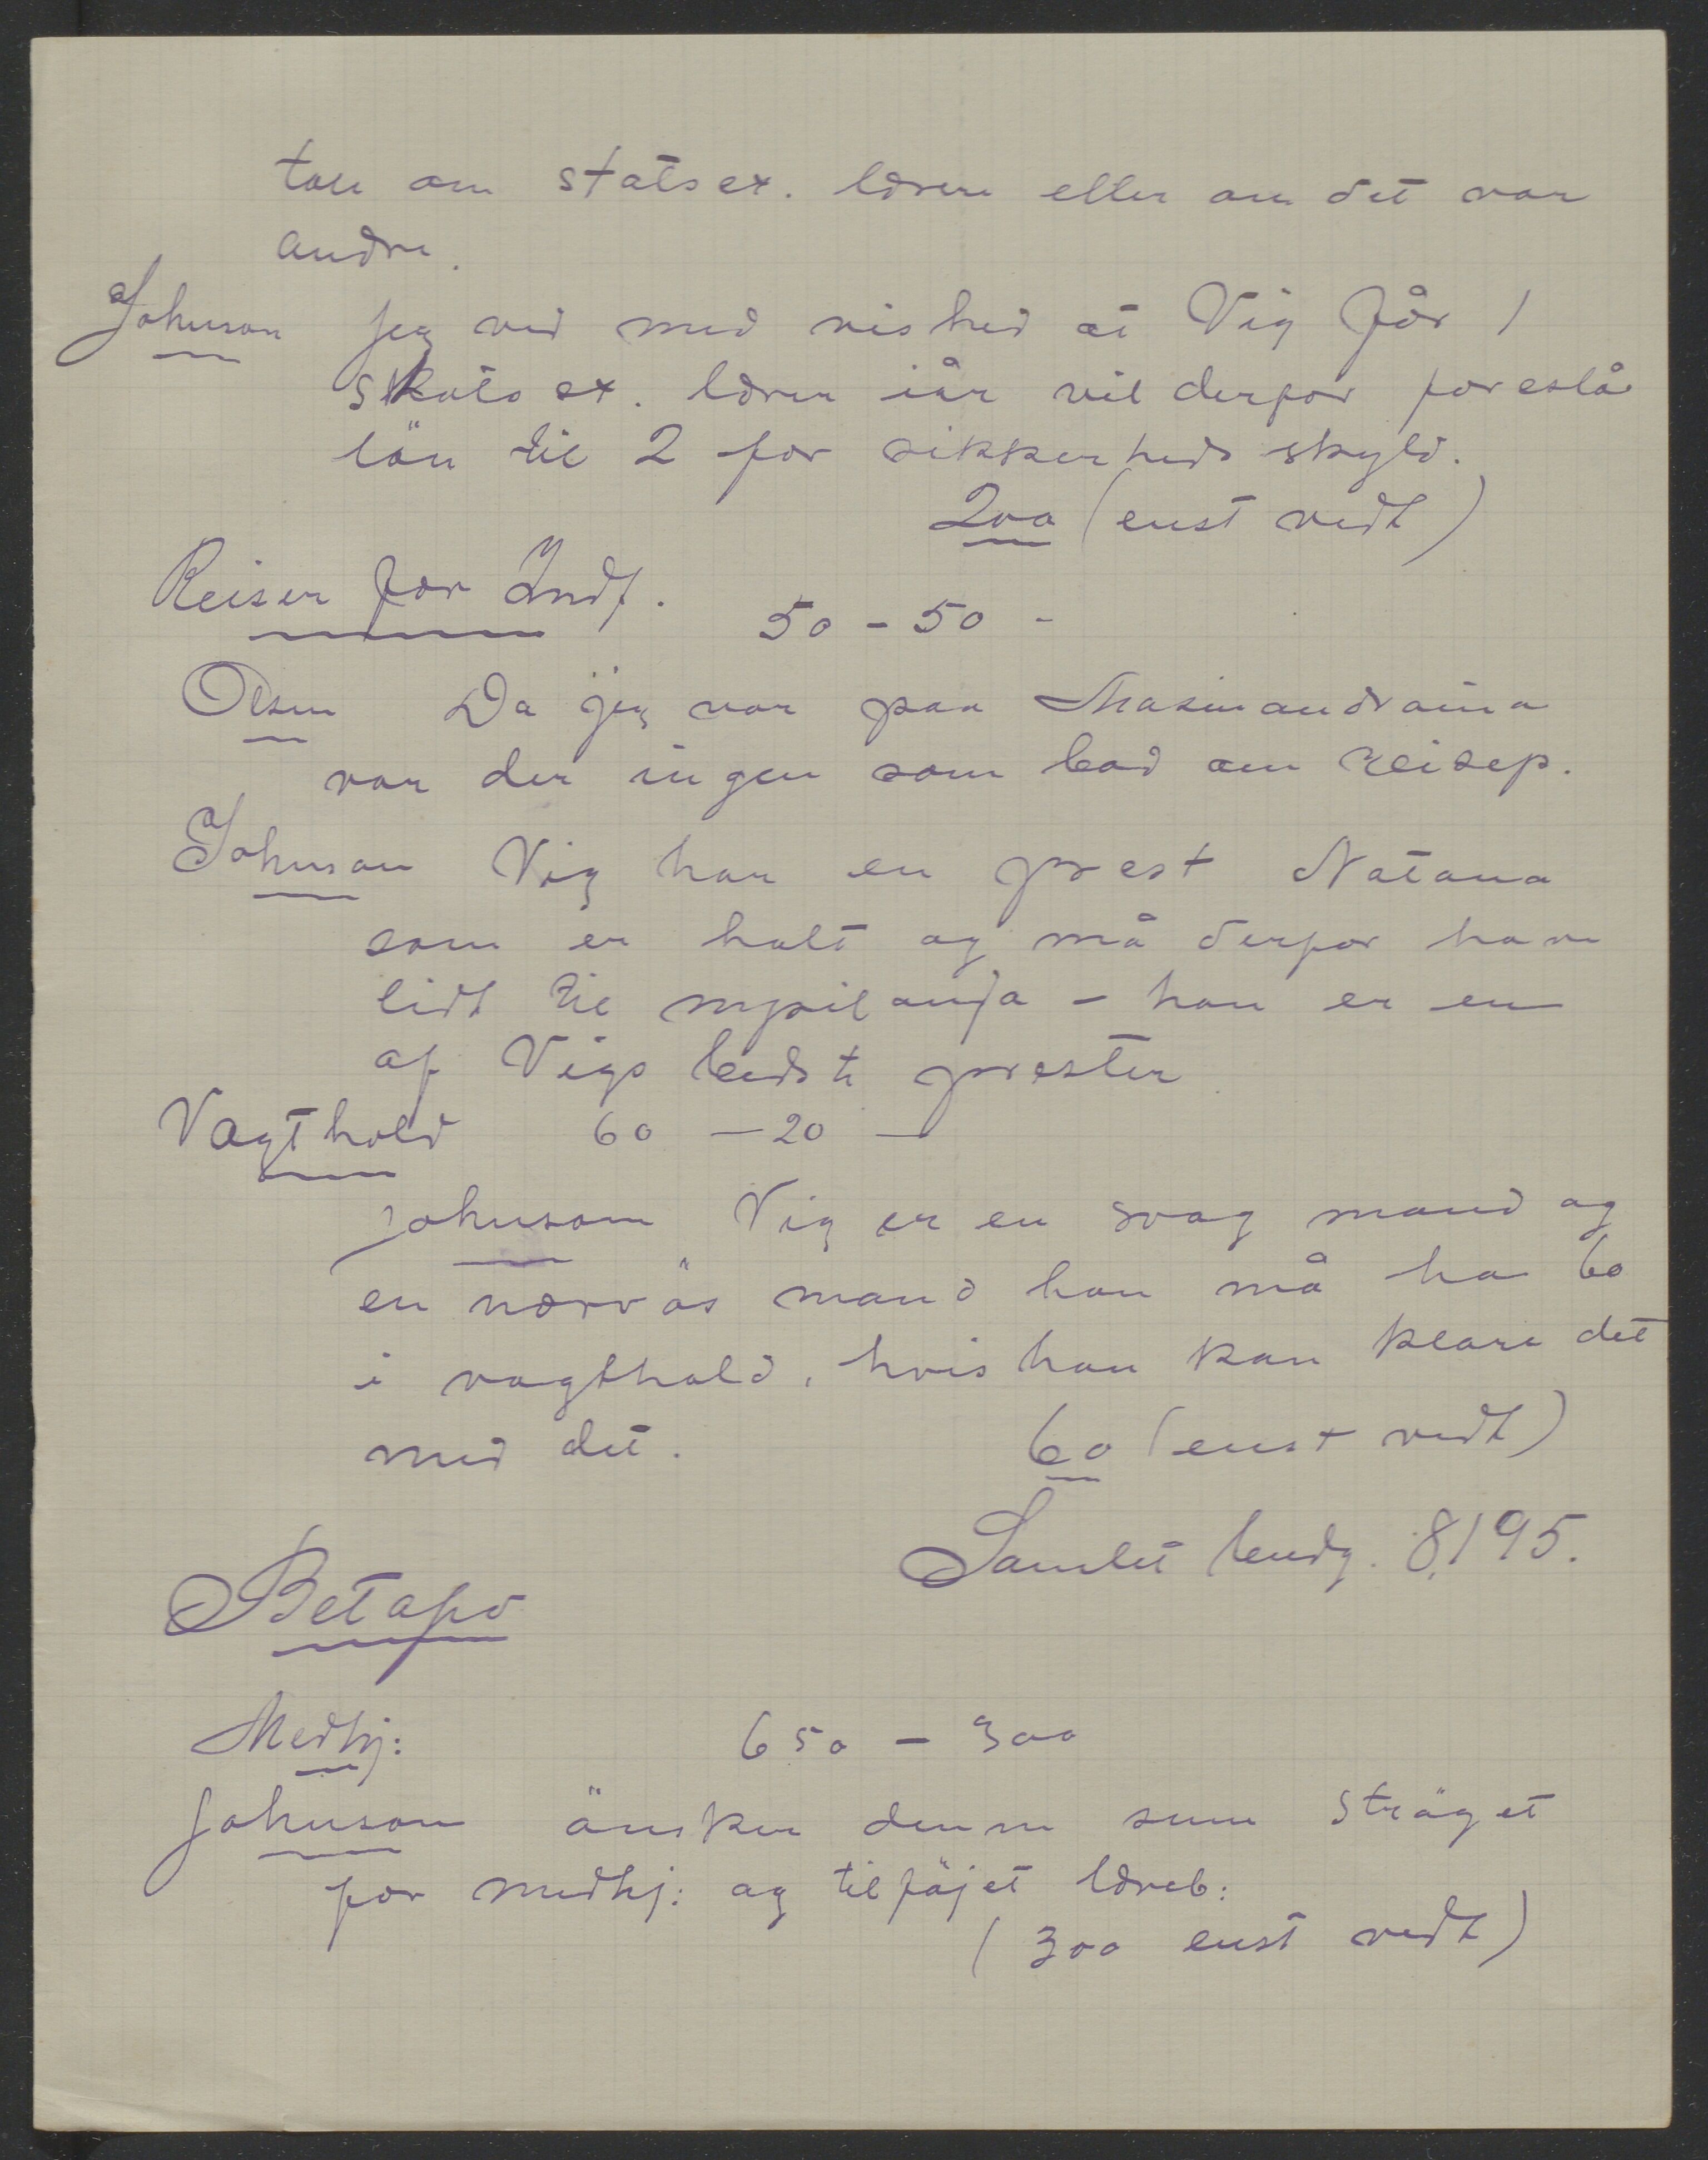 tale om statsex. lærere eller om det var
andre.
Johnson Jeg ved med vished at Vig får 1
statsex. lærer iår vil derfor foreslå
lön til 2 for sikkerheds skyld.
200 (enst vedt)
Reiser for Indf. 50 - 50 -
Olsen Da jeg var paa Masinandraina
var der ingen som bad om reisep.
Johnson Vig har en prest Natana
som er halt og må derfor have
lidt til mpilanja - han er en
af Vigs bedste prester
Vagthold 60 - 20 -
Johnson Vig er en svag mand og
en nærvös mand han må ha 60
i vagthold, hvis han kan klare det
med det. 60 (enst vedt)
Samlet budg. 8,195.
Betafo
Medhj: 650 - 300
Johnson önsker denne sum ströget
for medhj: og tilföjet læreb:
(300 enst vedt)